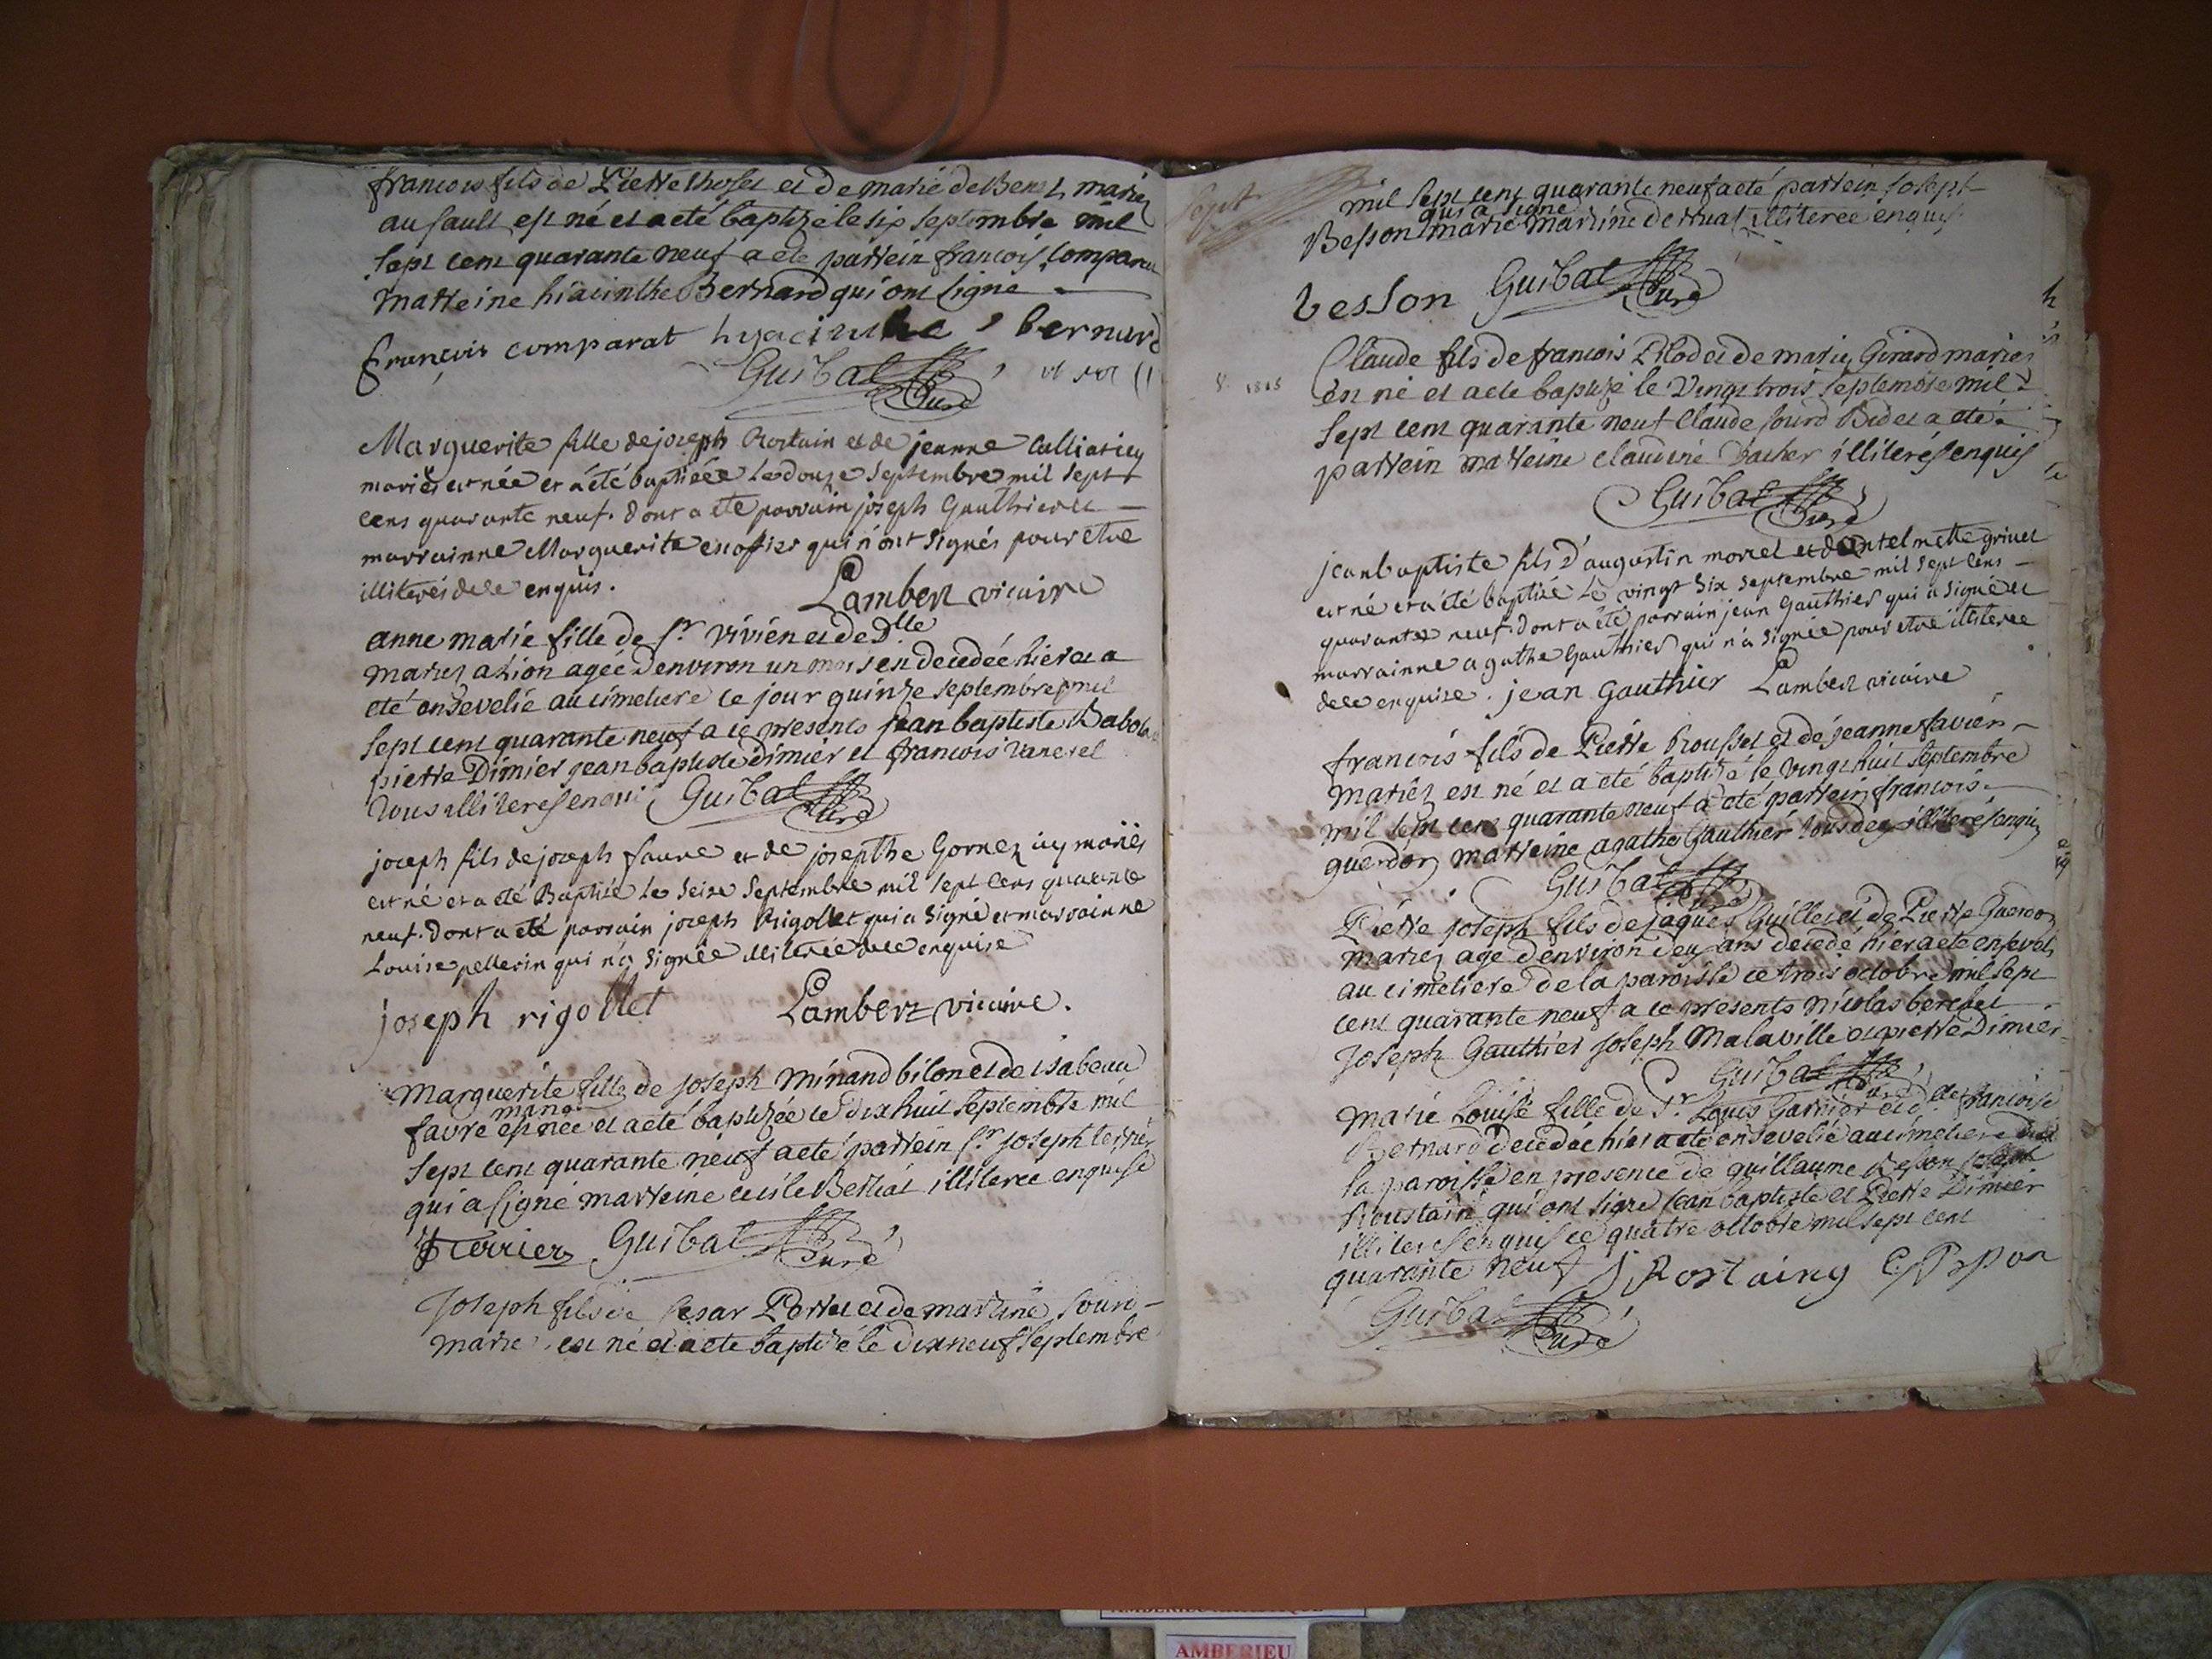 francois fils de Pierre et de marie de mariez
au sault est né et a eté baptizé le six septembre mil
sept cent quarante neuf a eté parrein francois Comparat
marreine hiacinthe Bernard qui ont signé
françois comparat hyacinthe bernard
Guibal Curé
Marguerite fille de joseph Rostain et de jeanne
mariés est née et a été baptisée le douze septembre mil sept
cens quarante neuf. dont a été parrain joseph Gauthier et
marrainne Marguerite qui n'ont signés pour etre
illiterés de ce enquis. Lambert vicaire
anne marie fille de Sr. vivien et de Dlle
mariez a Lion agée d'environ un mois en decedée hier et a
eté ensevelie au cimetiere ce jour quinze septembre mil
sept cent quarante neuf a ce presents jean baptiste
pierre Dimier jean baptiste dimier et francois
tous illiteres enquis Guibal Curé
joseph fils de joseph faure et de josepthe Gornez mariés
est né et a été Baptisé le seize septembre mil sept cens quarante
neuf. dont a été parrain joseph Rigollet qui a signé et marrainne
Louise pellerin qui n'a signée illiterée de ce enquise
joseph rigollet Lambert vicaire.
Marguerite fille de joseph Minand bilon et de isabeau
favre est née et a eté baptizée le dix huit septembre mil
sept cent quarante neuf a eté parrein Sr joseph terrier
qui a signé marreine cecile illiterée enquise
terrier Guibal Curé
Joseph fils de Cesar et de martine
marie est né et a eté baptizé le dix neuf septembre
sept
mil sept cent quarante neuf a eté parrein joseph
qui a signé
Besson marie martine illiterée enquise
besson Guibal Curé
Claude fils de francois Pilod et de marie Girard mariez
est né et a eté baptizé le vingt trois septembre mil
sept cent quarante neuf Claude jourd Bidet a eté
parrein marreine claudine illiterés enquis
Guibal Curé
jean baptiste fils d'augustin morel et d'antelmette grivet
est né et a été baptisé le vingt six septembre mil sept cens
quarante neuf. dont a été parrain jean Gauthier qui a signé et
marrainne agathe Gauthier qui n'a signée pour etre illiteree
de ce enquise. jean Gauthier Lambert vicaire
francois fils de Pierre Rousset et de jeanne favier
mariez est né et a eté baptizé le vingt huit septembre
mil sept cent quarante neuf a eté parrein francois
guerdon marreine agathe Gauthier tous deux illiterés enquis
Guibal Curé
Pierre joseph fils de jaques Guillet et de Pierre Guerdon
mariez agé d'environ deux ans decedé hier a eté enseveli
au cimetiere de la paroisse ce trois octobre mil sept
cent quarante neuf a ce presents nicolas berchet
Joseph Gauthier joseph Malaville et pierre Dimier
Guibal Curé
Marie Louise fille de Sr. Louis Garnier et d. dlle francoise
Bernard decedée hier a eté ensevelie au cimetiere de
la paroisse en presence de guillaume Besson joseph
Roustain qui ont signé jean baptiste et Pierre Dimier
illiteres enquis ce quatre octobre mil sept cent
quarante neuf J Rostaing
Guibal Curé
AMBERIEU